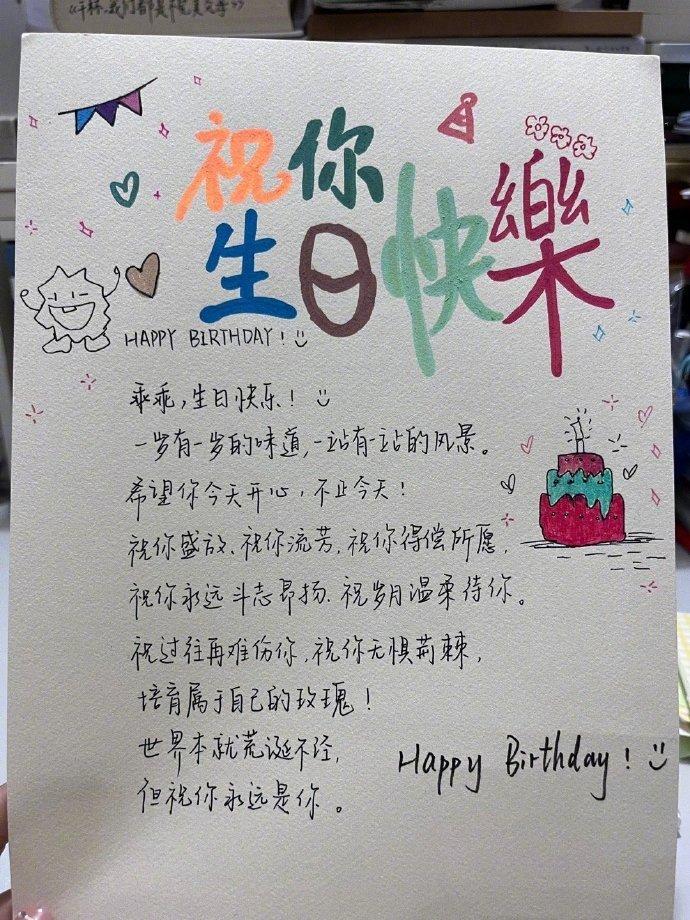 《干杯，我们都是不完美
祝你
生日快樂
HAPPY BIRTHDAY！
乖乖，生日快乐！
一岁有一岁的味道，一站有一站的风景。
希望你今天开心，不止今天！
祝你盛放、祝你流芳，祝你得偿所愿，
祝你永远斗志昂扬、祝岁月温柔待你。
祝过往再难伤你，祝你无惧荆棘，
培育属于自己的玫瑰！
世界本就荒诞不经，
但祝你永远是你。
Happy Birthday！